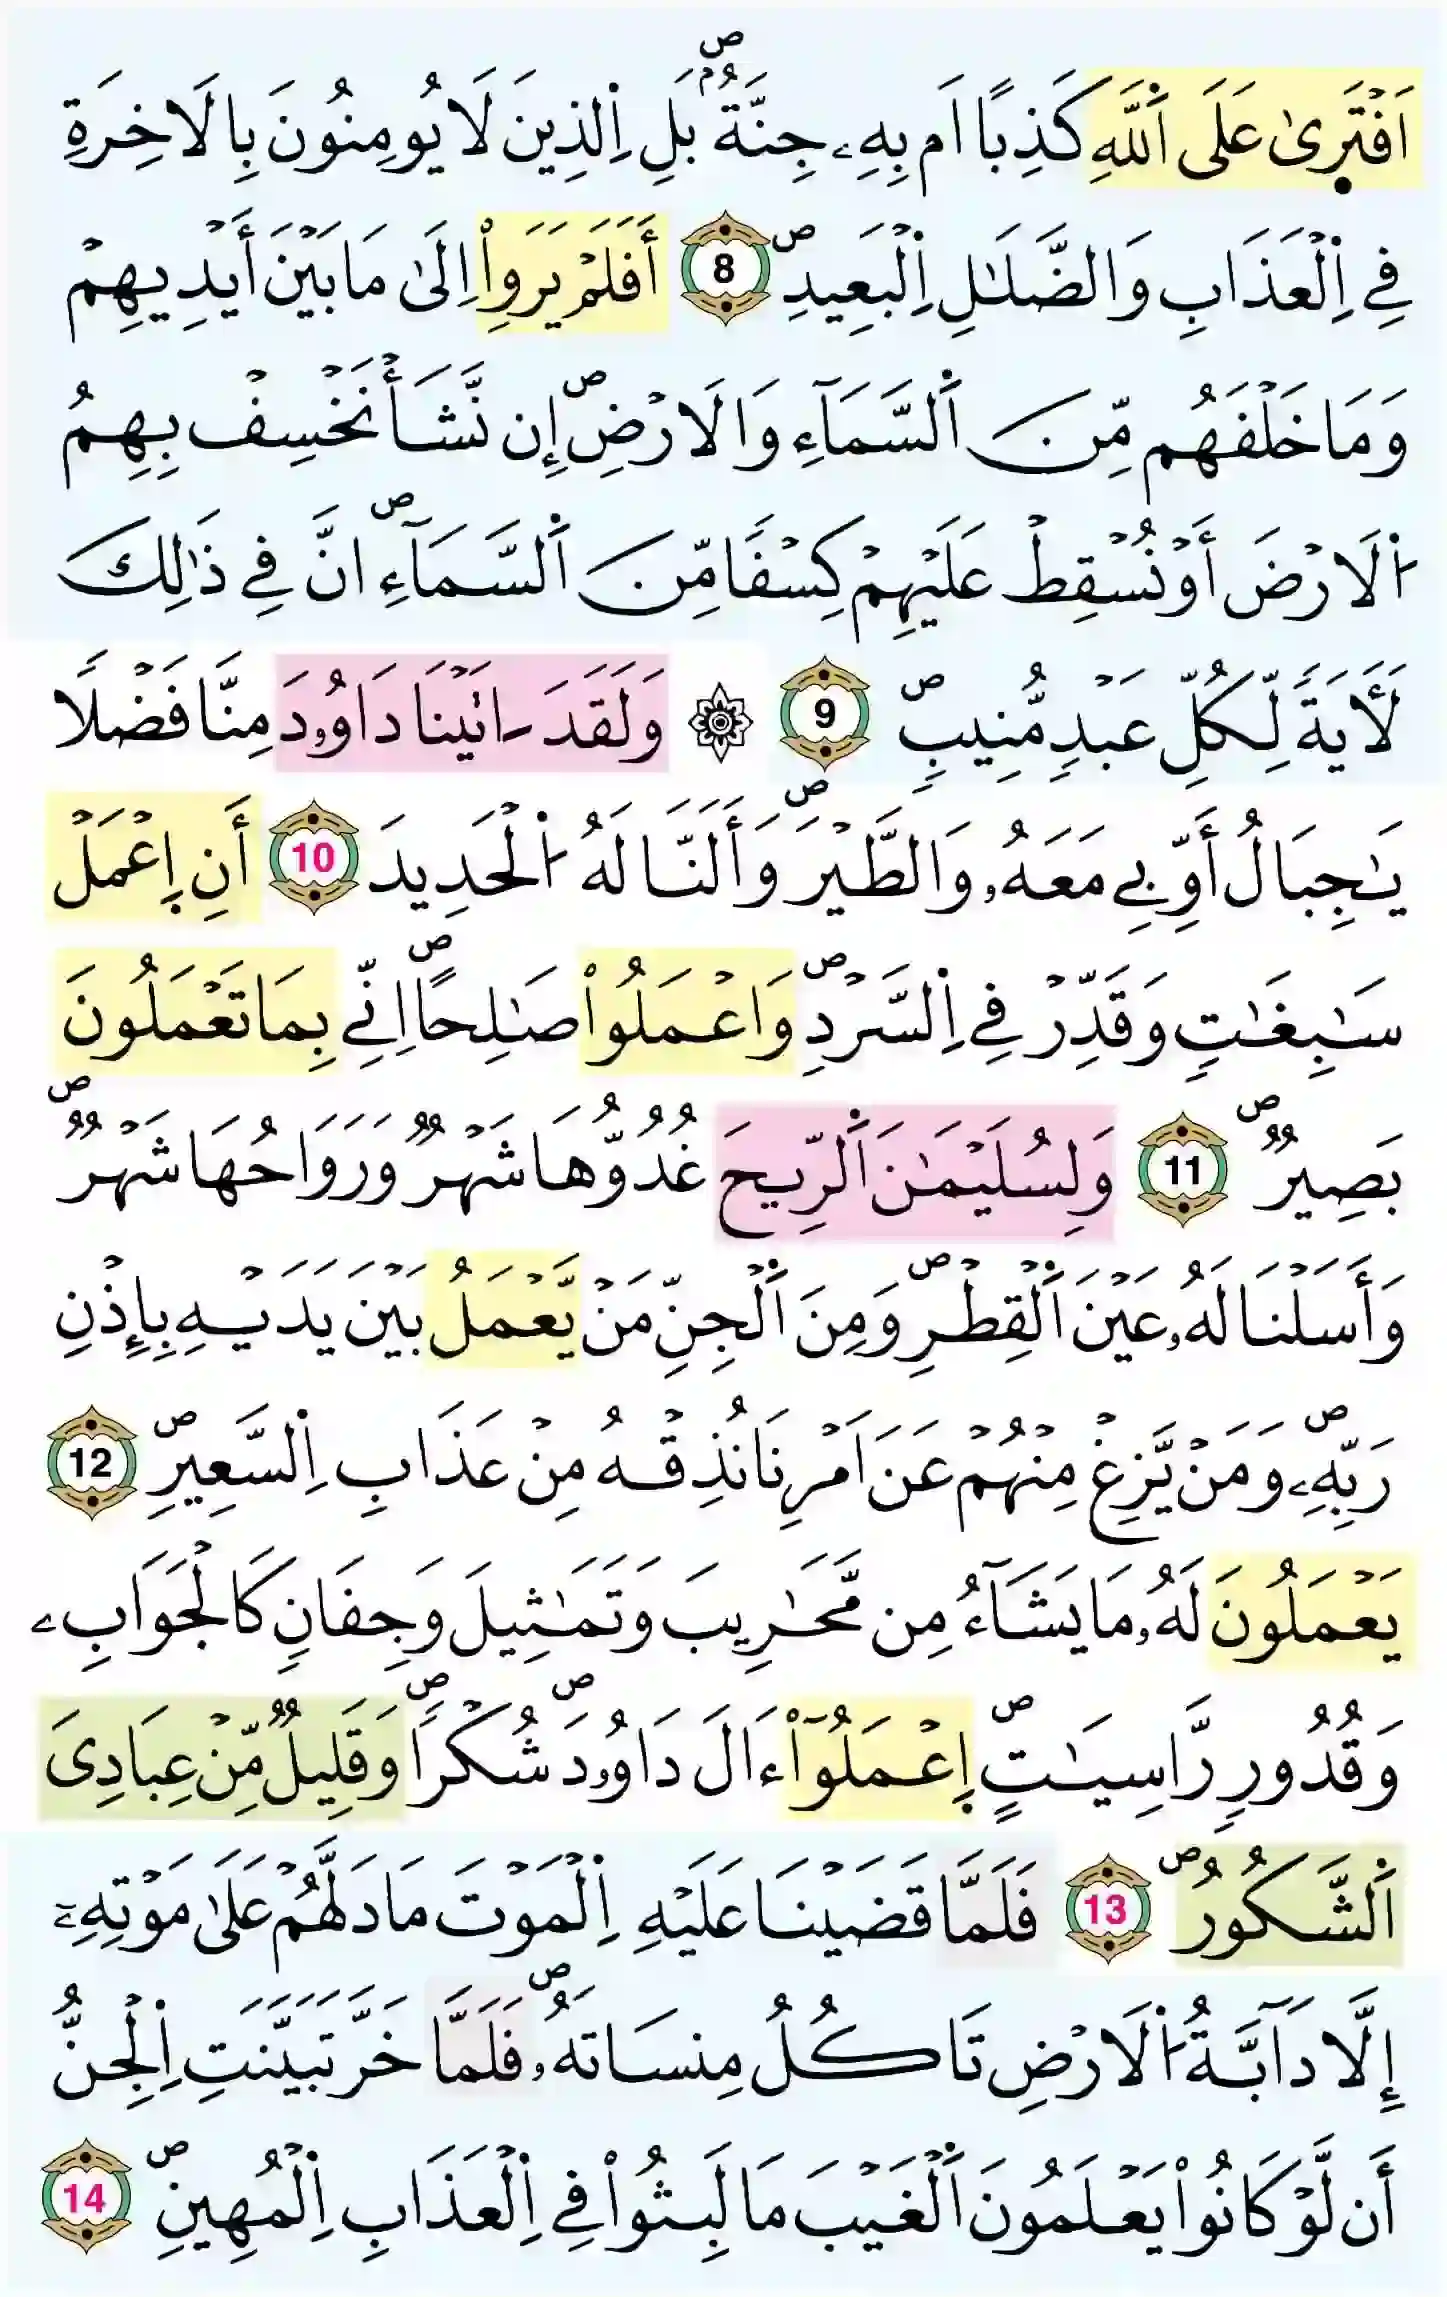 اَفْتَر۪ىٰ عَلَى اَ۬للَّهِ كَذِباً اَم بِهِۦ جِنَّةُۢۖ بَلِ اِ۬لذِينَ لَا يُومِنُونَ بِالَاخِرَةِ
فِے اِ۬لْعَذَابِ وَالضَّلَٰلِ اِ۬لْبَعِيدِۖ 8 أَفَلَمْ يَرَوِاْ اِلَىٰ مَا بَيْنَ أَيْدِيهِمْ
وَمَا خَلْفَهُم مِّنَ اَ۬لسَّمَآءِ وَالَارْضِۖ إِن نَّشَأْ نَخْسِفْ بِهِمُ
اُ۬لَارْضَ أَوْ نُسْقِطْ عَلَيْهِمْ كِسْفاً مِّنَ اَ۬لسَّمَآءِۖ انَّ فِے ذَٰلِكَ
لَأٓيَةً لِّكُلِّ عَبْدٍ مُّنِيبٍۖ 9 ۞ وَلَقَدَ اٰتَيْنَا دَاوُۥدَ مِنَّا فَضْلاً
يَٰجِبَالُ أَوِّبِے مَعَهُۥ وَالطَّيْرَۖ وَأَلَنَّا لَهُ اُ۬لْحَدِيدَ 10 أَنِ اِ۪عْمَلْ
سَٰبِغَٰتٍ وَقَدِّرْ فِے اِ۬لسَّرْدِۖ وَاعْمَلُواْ صَٰلِحاًۖ اِنِّے بِمَا تَعْمَلُونَ
بَصِيرٌۖ 11 وَلِسُلَيْمَٰنَ اَ۬لرِّيحَ غُدُوُّهَا شَهْرٌ وَرَوَاحُهَا شَهْرٌۖ
وَأَسَلْنَا لَهُۥ عَيْنَ اَ۬لْقِطْرِۖ وَمِنَ اَ۬لْجِنِّ مَنْ يَّعْمَلُ بَيْنَ يَدَيْهِ بِإِذْنِ
رَبِّهِۦۖ وَمَنْ يَّزِغْ مِنْهُمْ عَنَ اَمْرِنَا نُذِقْهُ مِنْ عَذَابِ اِ۬لسَّعِيرِۖ 12
يَعْمَلُونَ لَهُۥ مَا يَشَآءُ مِن مَّحَٰرِيبَ وَتَمَٰثِيلَ وَجِفَانٍ كَالْجَوَابِۦ
وَقُدُورٍ رَّاسِيَٰتٍۖ اِ۪عْمَلُوٓاْ ءَالَ دَاوُۥدَۖ شُكْراًۖ وَقَلِيلٌ مِّنْ عِبَادِىَ
اَ۬لشَّكُورُۖ 13 فَلَمَّا قَضَيْنَا عَلَيْهِ اِ۬لْمَوْتَ مَا دَلَّهُمْ عَلَىٰ مَوْتِهِۦٓ
إِلَّا دَآبَّةُ اُ۬لَارْضِ تَاكُلُ مِنسَاتَهُۥۖ فَلَمَّا خَرَّ تَبَيَّنَتِ اِ۬لْجِنُّ
أَن لَّوْ كَانُواْ يَعْلَمُونَ اَ۬لْغَيْبَ مَا لَبِثُواْ فِے اِ۬لْعَذَابِ اِ۬لْمُهِينِۖ 14